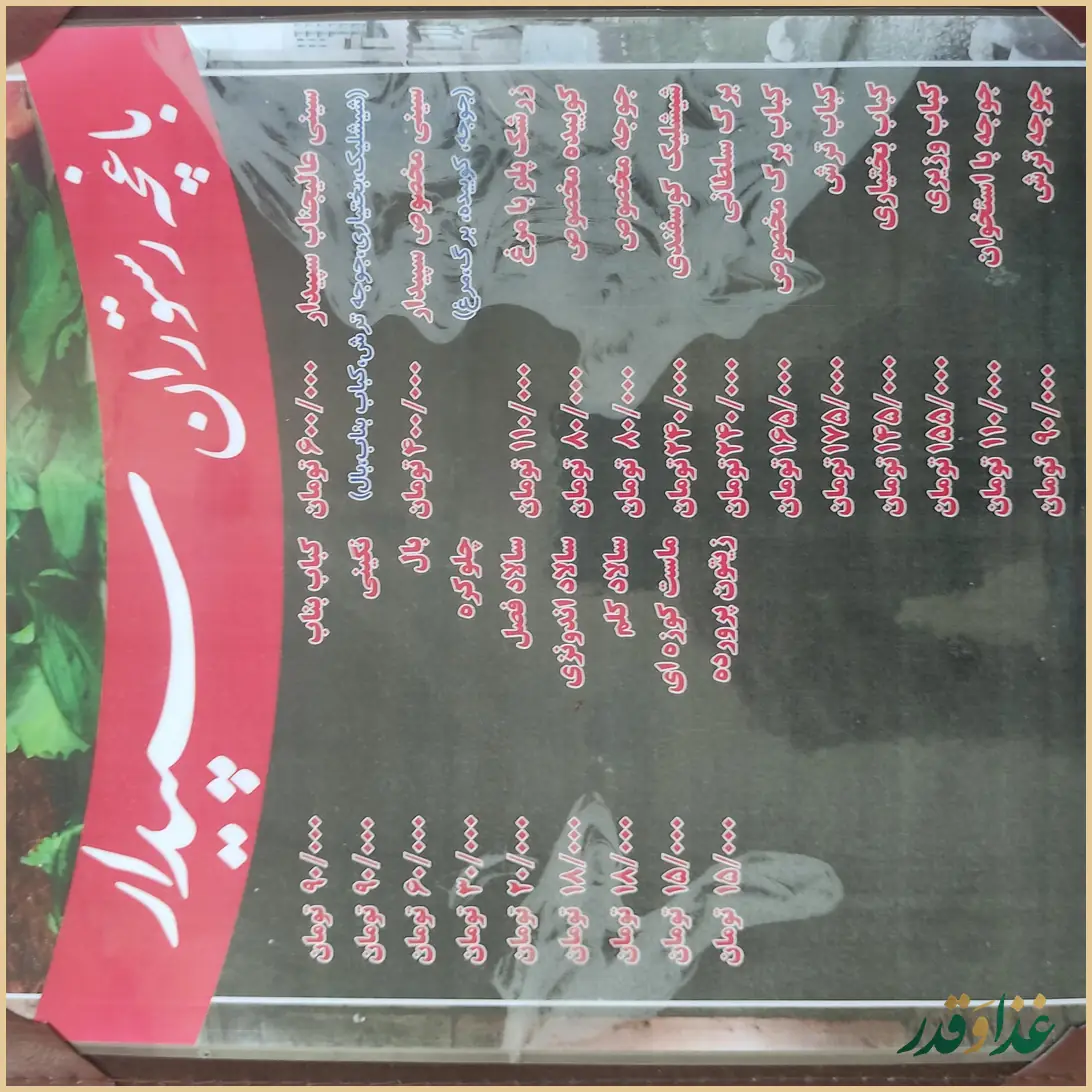 باغچه رستوران سپیدار
سینی عالیجناب سپیدار ۶۰۰/۰۰۰ تومان
(شیشلیک،بختیاری،جوجه ترش،کباب بناب،بال)
سینی مخصوص سپیدار ۴۰۰/۰۰۰ تومان
(جوجه، کوبیده، برگ،مرغ)
زرشک پلو با مرغ ۱۱۰/۰۰۰ تومان
کوبیده مخصوص ۸۰/۰۰۰ تومان
جوجه مخصوص ۸۰/۰۰۰ تومان
شیشلیک گوسفندی ۲۴۰/۰۰۰ تومان
برگ سلطانی ۲۴۰/۰۰۰ تومان
کباب برگ مخصوص ۱۶۵/۰۰۰ تومان
کباب ترش ۱۷۵/۰۰۰ تومان
کباب بختیاری ۱۴۵/۰۰۰ تومان
کباب وزیری ۱۵۵/۰۰۰ تومان
جوجه با استخوان ۱۱۰/۰۰۰ تومان
جوجه ترش ۹۰/۰۰۰ تومان
کباب بناب ۹۰/۰۰۰ تومان
نگینی ۹۰/۰۰۰ تومان
بال ۶۰/۰۰۰ تومان
چلوکره ۳۰/۰۰۰ تومان
سالاد فصل ۲۰/۰۰۰ تومان
سالاد اندونزی ۱۸/۰۰۰ تومان
سالاد کلم ۱۸/۰۰۰ تومان
ماست کوزه ای ۱۵/۰۰۰ تومان
زیتون پرورده ۱۵/۰۰۰ تومان
غذا و قدر